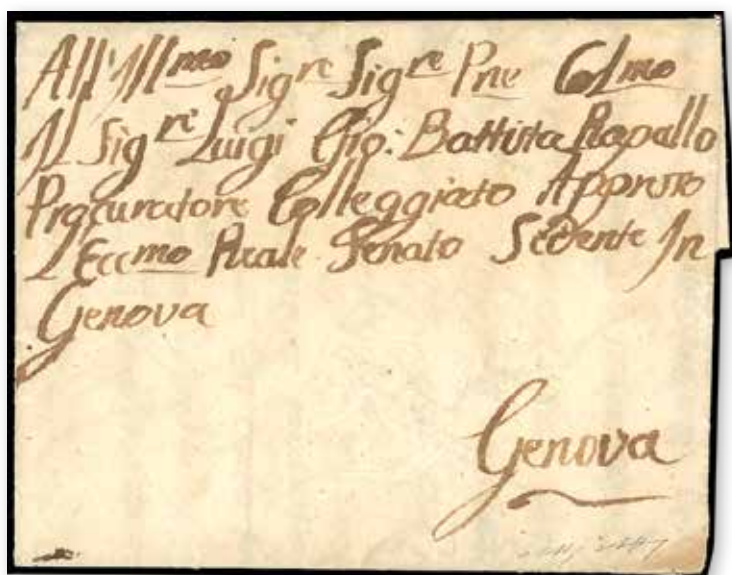 All'Illmo Sigre Sigre Pne Colmo
Il Sigre Luigi Gio: Battista Rapallo
Procuratore Colleggiato Appreso
L'Eccmo Reale Senato Sedente In
Genova
Genova